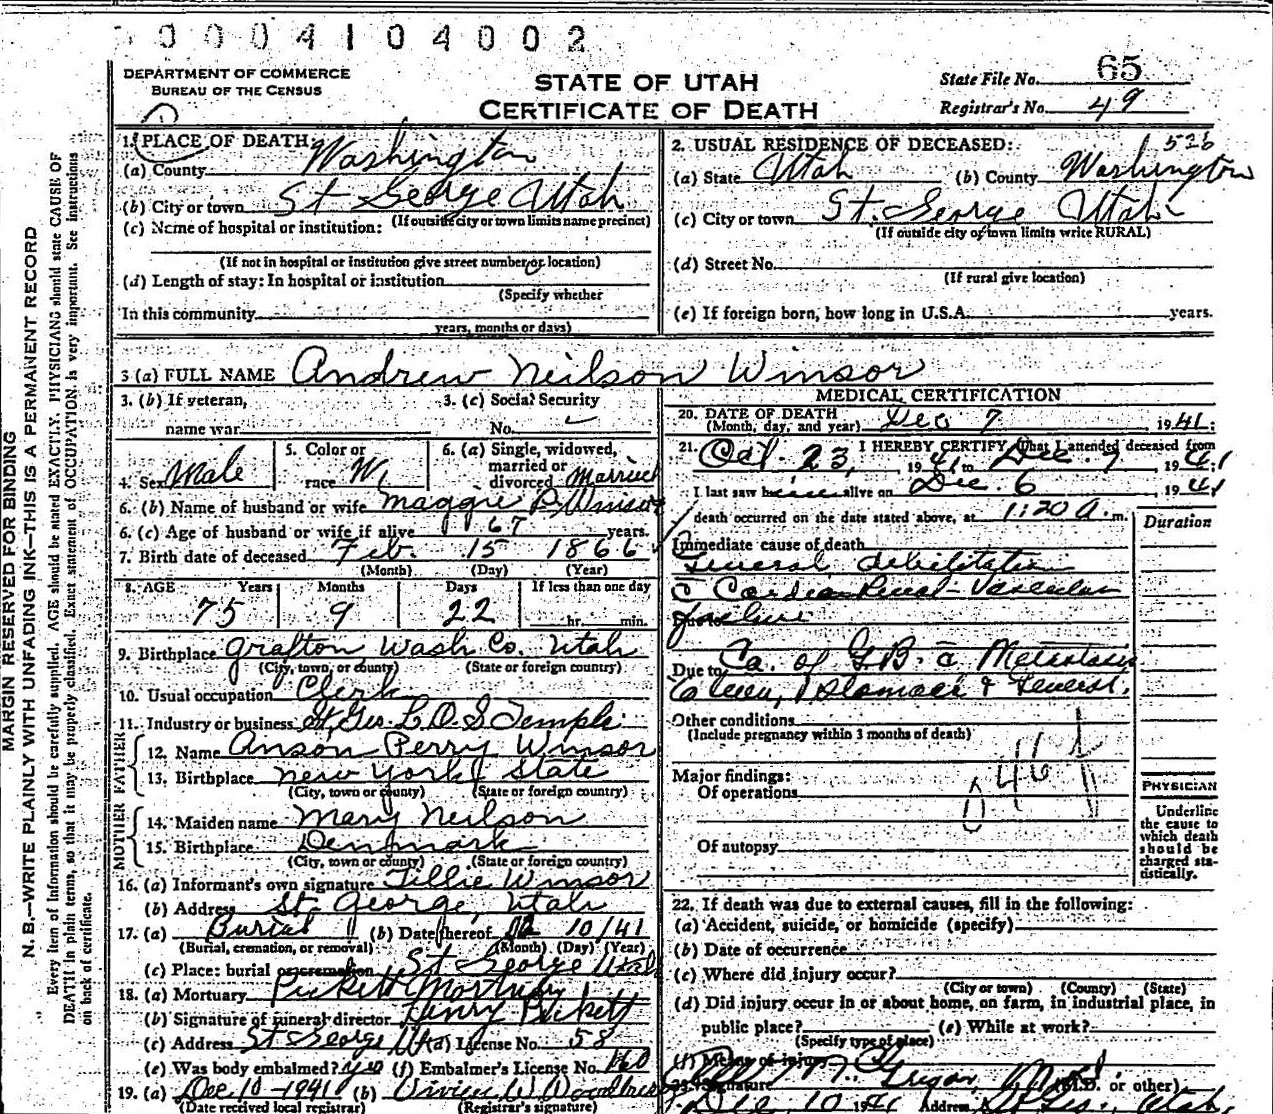 0004104002
DEPARTMENT OF COMMERCE
BUREAU OF THE CENSUS
STATE OF UTAH
CERTIFICATE OF DEATH
State File No. 65
Registrar's No. 49
MARGIN RESERVED FOR BINDING
N. B.—WRITE PLAINLY WITH UNFADING INK—THIS IS A PERMANENT RECORD
Every item of information should be carefully supplied. AGE should be stated EXACTLY. PHYSICIANS should state CAUSE OF
DEATH in plain terms, so that it may be properly classified. Exact statement of OCCUPATION is very important. See instructions
on back of certificate.
1. PLACE OF DEATH:
(a) County Washington
(b) City or town St George Utah
(If outside city or town limits name precinct)
(c) Name of hospital or institution:
(If not in hospital or institution give street number or location)
(d) Length of stay: In hospital or institution
(Specify whether
In this community
years, months or days)
2. USUAL RESIDENCE OF DECEASED:
(a) State Utah (b) County Washington
(c) City or town St. George Utah
(If outside city or town limits write RURAL)
(d) Street No.
(If rural give location)
(e) If foreign born, how long in U.S.A. years.
3 (a) FULL NAME Andrew Neilson Winsor
3. (b) If veteran,
name war
3. (c) Social Security
No.
4. Sex Male
5. Color or
race W.
6. (a) Single, widowed,
married or
divorced Married
6. (b) Name of husband or wife Maggie P. Winsor
6. (c) Age of husband or wife if alive 67 years.
7. Birth date of deceased Feb. 15 1866
(Month) (Day) (Year)
8. AGE Years Months Days If less than one day
75 9 22 hr. min.
9. Birthplace Grafton Wash Co. Utah
(City, town, or county) (State or foreign country)
10. Usual occupation Clerk
11. Industry or business St. Geo. L.D.S Temple
FATHER
12. Name Anson Perry Winsor
13. Birthplace New York State
(City, town or county) (State or foreign country)
MOTHER
14. Maiden name Mary Neilson
15. Birthplace Denmark
(City, town or county) (State or foreign country)
16. (a) Informant's own signature Tillie Winsor
(b) Address St. George, Utah
17. (a) Burial (b) Date thereof 12 10/41
(Burial, cremation, or removal) (Month) (Day) (Year)
(c) Place: burial or cremation St George Utah
18. (a) Mortuary Pickett Mortuary
(b) Signature of funeral director Henry Pickett
(c) Address St George Ut (d) License No. 58
(e) Was body embalmed? yes (f) Embalmer's License No. 160
19. (a) Dec 10-1941 (b) Vivian W
(Date received local registrar) (Registrar's signature)
MEDICAL CERTIFICATION
20. DATE OF DEATH
(Month, day, and year) Dec 7, 1941.
21. I HEREBY CERTIFY That I attended deceased from
Oct. 23, 1941 to Dec. 7 1941
I last saw alive on Dec. 6 1941
death occurred on the date stated above, at 1:20 A. m.
Duration
Immediate cause of death
General debilitation
c Cardio Renal-Vascular
failure
Due to Ca. of G.B. c Metastasis
to liver, stomach & General.
Other conditions
(Include pregnancy within 3 months of death)
Major findings:
Of operations
Of autopsy
PHYSICIAN
Underline
the cause to
which death
should be
charged sta-
tistically.
22. If death was due to external causes, fill in the following:
(a) Accident, suicide, or homicide (specify)
(b) Date of occurrence
(c) Where did injury occur?
(City or town) (County) (State)
(d) Did injury occur in or about home, on farm, in industrial place, in
public place? (e) While at work?
(Specify type of place)
(f) Means of injury
23. Signature (M.D. or other)
Dec 10 1941 Address St Geo., Utah